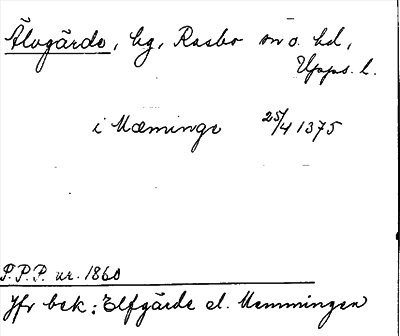 Älvgärde, hg, Rasbo sn o. hd,
Upps. l.
i Mæminge 25/4 1375
P.P.P. nr. 1860
Jfr bek: Elfgärde el. Memmingen